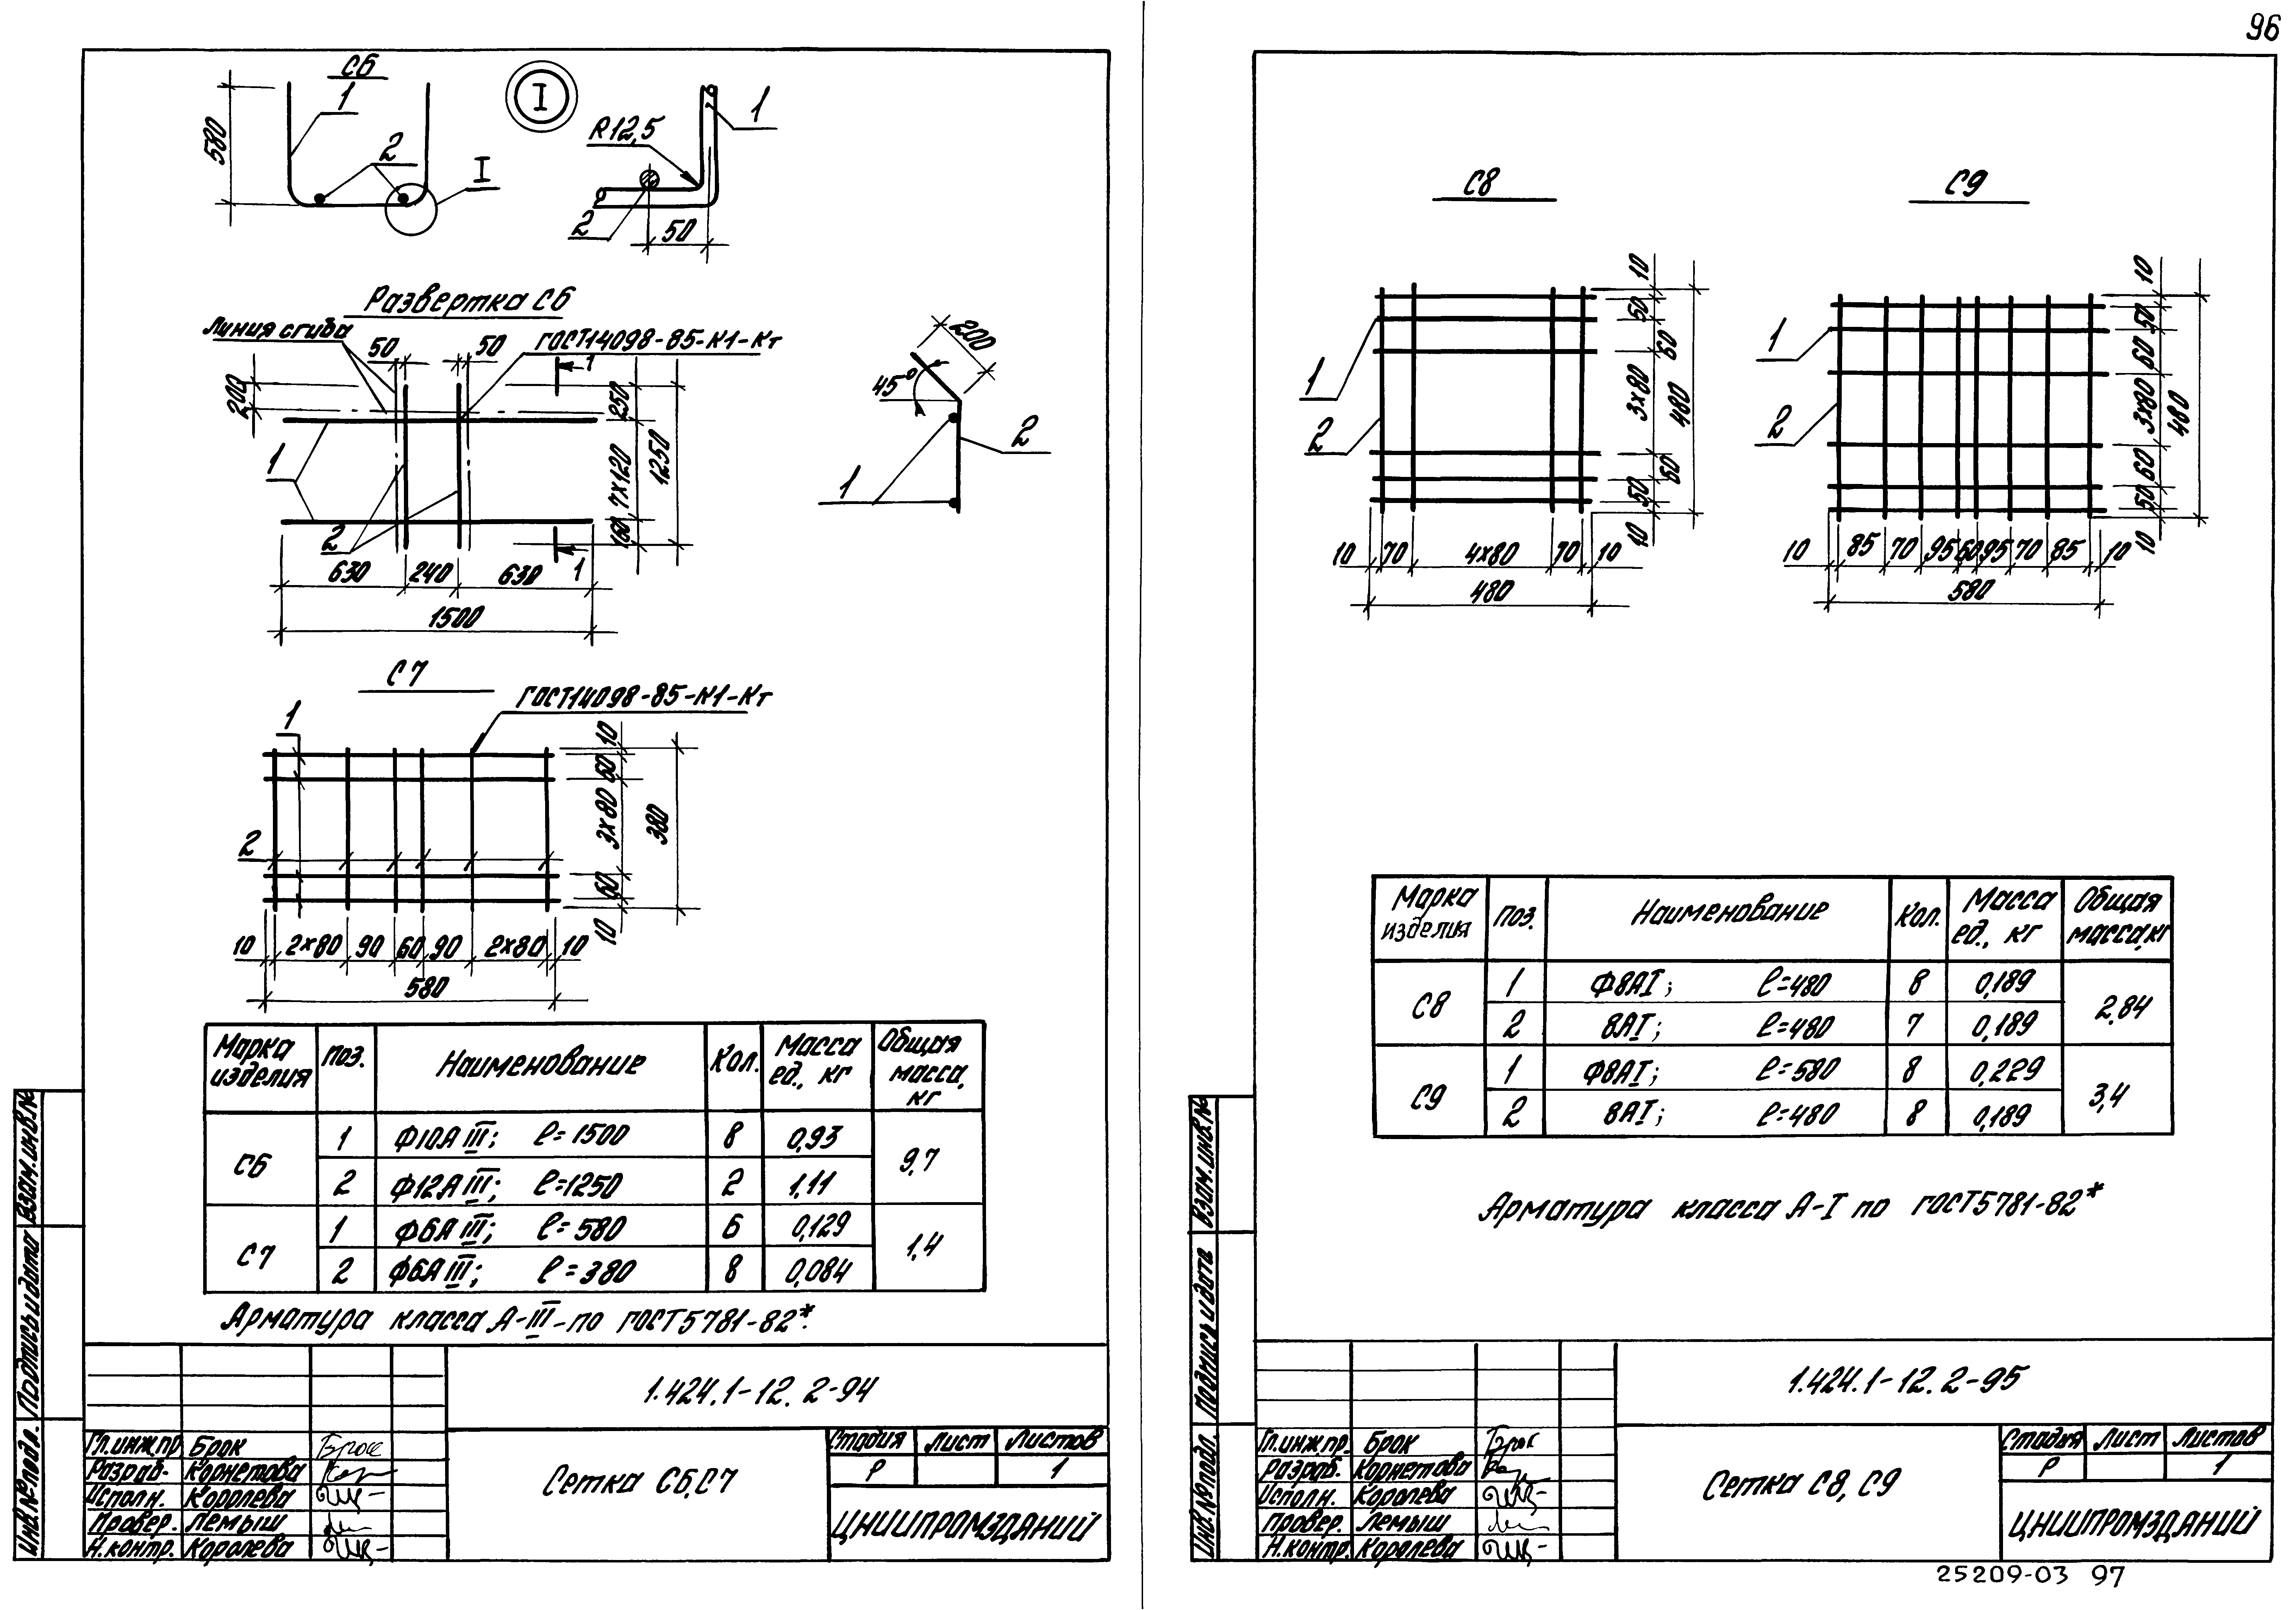 96
С6
1
580
2
I
I
R12,5
1
2
50
Развертка С6
Линия сгиба
50
50
ГОСТ14098-85-К1-Кт
1
200
250
7х120
160
1250
1
2
630
240
630
1
1500
200
45°
1
2
С7
ГОСТ14098-85-К1-Кт
1
2
10
60
3х80
60
10
380
10
2х80
90
60
90
2х80
10
580
Марка изделия
Поз.
Наименование
Кол.
Масса ед., кг
Общая масса, кг
С6
1
Ф10АIII; ℓ=1500
8
0,93
9,7
2
Ф12АIII; ℓ=1250
2
1,11
С7
1
Ф6АIII; ℓ=580
6
0,129
1,4
2
Ф6АIII; ℓ=380
8
0,084
Арматура класса А-III-по ГОСТ5781-82*.
1.424.1-12.2-94
Гл.инж.пр Брок
Разраб. Корнетова
Исполн. Королева
Провер. Лемыш
Н.контр. Королева
Сетка С6,С7
Стадия Лист Листов
Р 1
ЦНИИПРОМЗДАНИЙ
Взам.инв.№
Подпись и дата
Инв.№ подл.
С8
1
2
10
50
60
3х80
60
50
10
480
10
70
4х80
70
10
480
С9
1
2
10
50
60
3х80
60
50
10
480
10
85
70
95
60
95
70
85
10
580
Марка изделия
Поз.
Наименование
Кол.
Масса ед., кг
Общая масса,кг
С8
1
Ф8АI; ℓ=480
8
0,189
2,84
2
8АI; ℓ=480
7
0,189
С9
1
Ф8АI; ℓ=580
8
0,229
3,4
2
8АI; ℓ=480
8
0,189
Арматура класса А-I по ГОСТ5781-82*
1.424.1-12.2-95
Гл.инж.пр. Брок
Разраб. Корнетова
Исполн. Королева
Провер. Лемыш
Н.контр. Королева
Сетка С8, С9
Стадия Лист Листов
Р 1
ЦНИИПРОМЗДАНИЙ
Взам.инв.№
Подпись и дата
Инв.№ подл.
25209-03 97